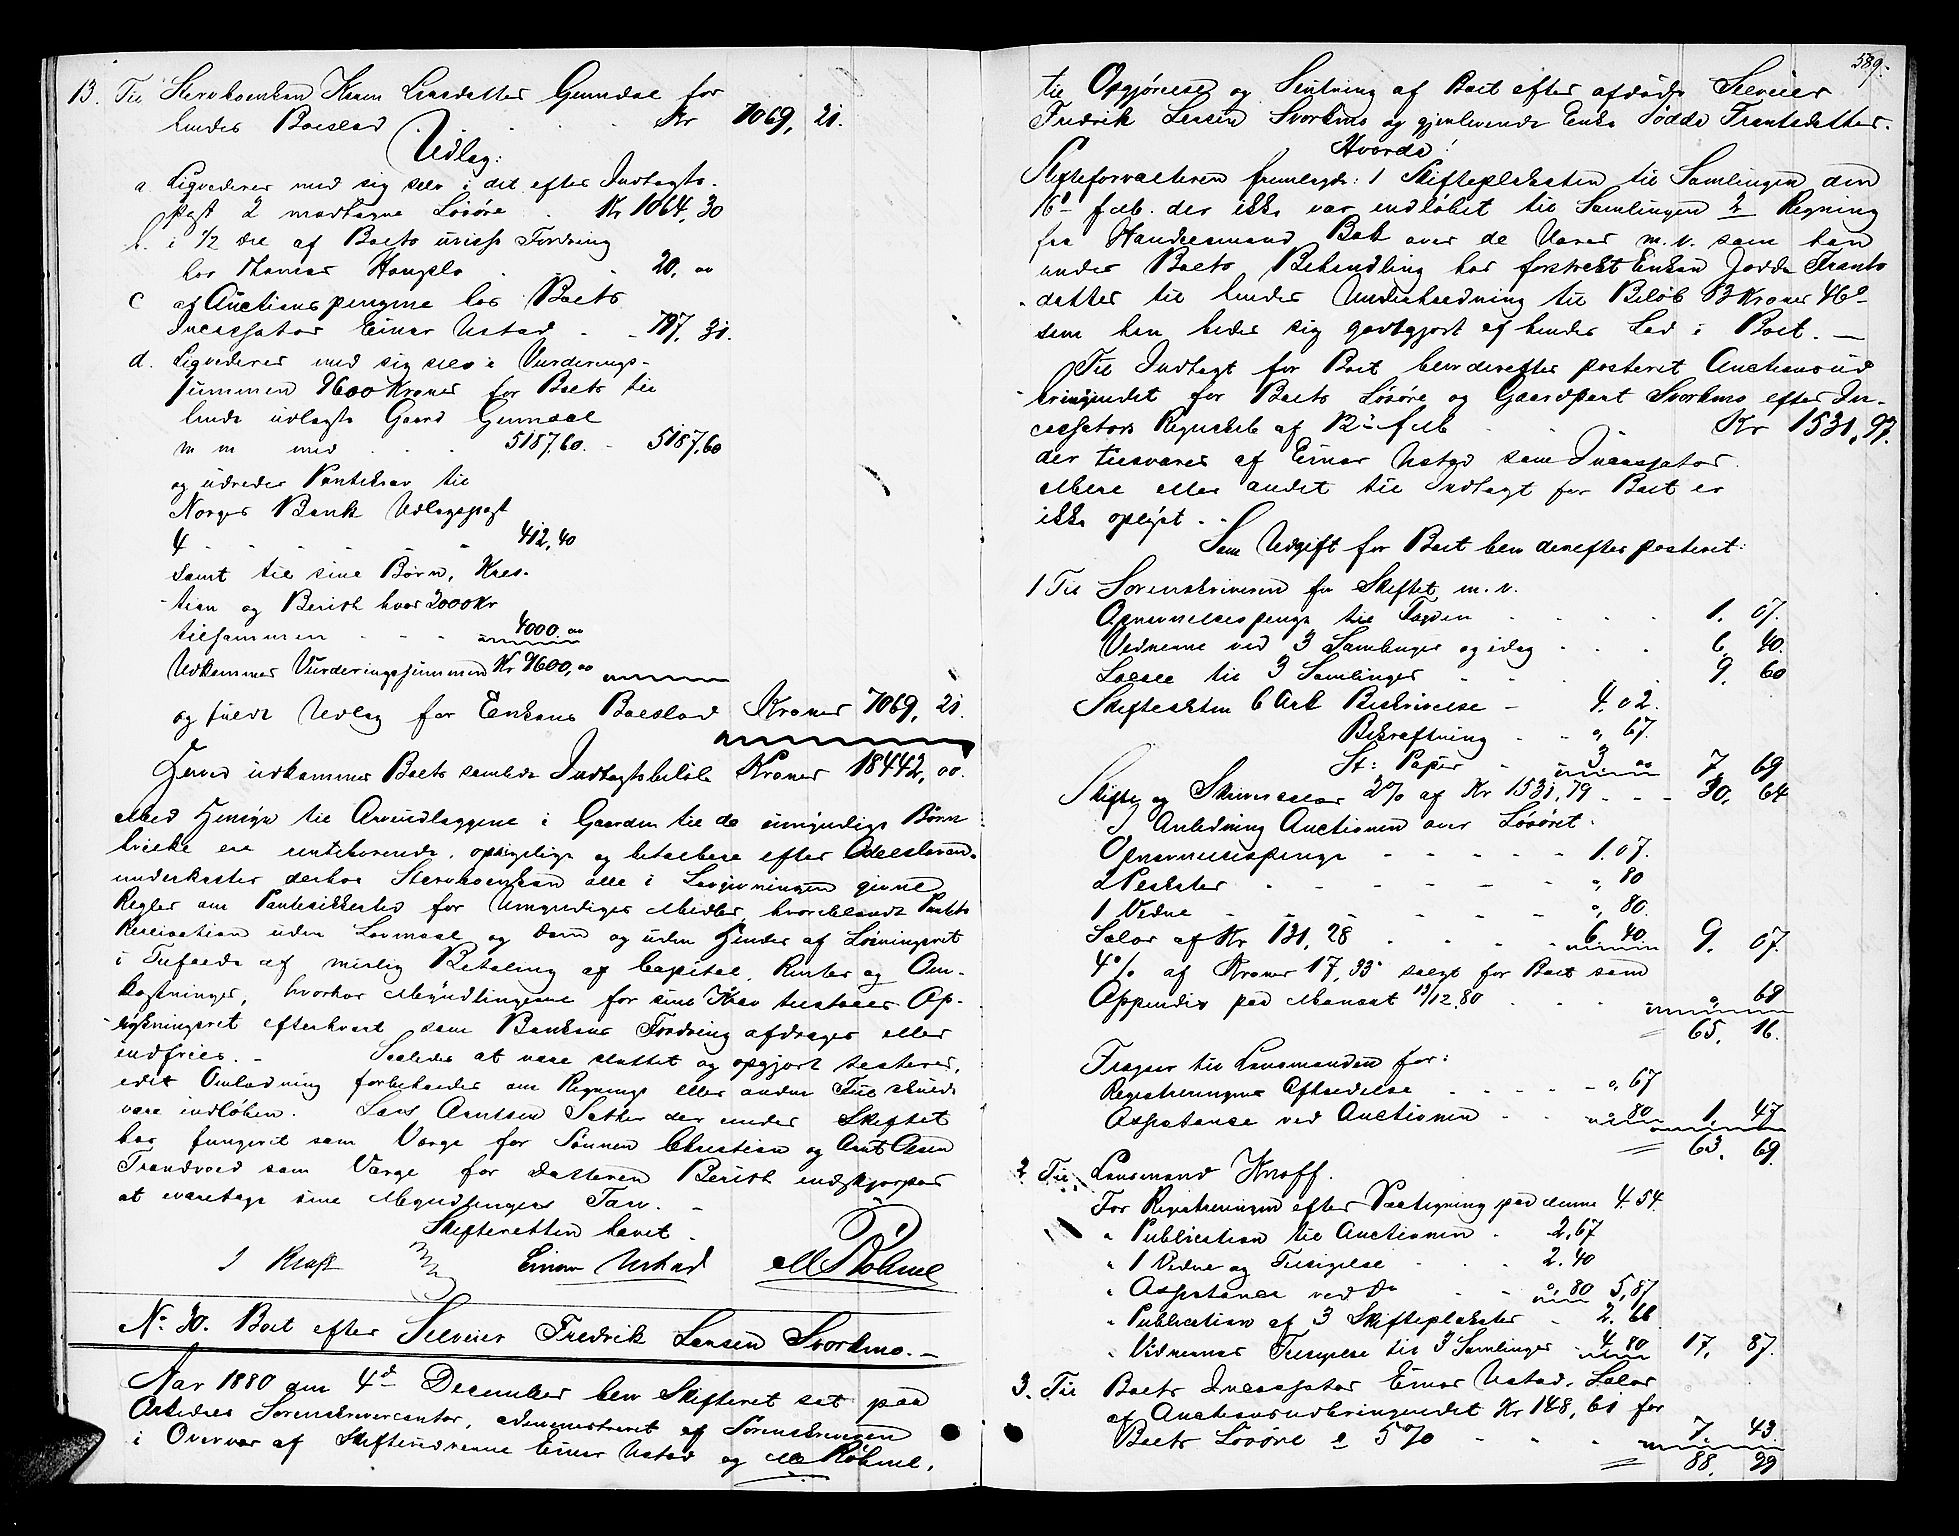 13. Til Stervboenken Karen Larsdatter Grindal for
hendes Boeslod . . . Kr 7069, 21.
Udlag:
a. Liqviderer med sig selv i det efter Indtægts-
post 2 modtagne Løsøre . Kr 1064, 30
b. i 1/2 Del af Boets uvisse Fordring
hos Thomas . . 20, 00
c af Auctionspengene hos Boets
Incassator Einar Ustad . - 797, 31.
d. Liqviderer med sig selv i Vurderings-
summen 9600 Kroner for Boets til
hende udlagte Gaard Grindal
m m med . . . 5187,60. - 5187,60
og udreder Pantekrav til
Norges Bank Udlagspost
4 - - - - - 412,40
samt til sine Børn, Kres-
tian og Berith hver 2000 Kr
tilsammen - - - 4000.00
Udkommer Vurderingssummen Kr 9600,00
og fuldt Udlæg for Enkens Boeslod Kroner 7069, 21.
Hermed udkommer Boets samlede Indtægtsbeløb Kroner 18442, 00.
Med Hensyn til Arveudlæggene i Gaarden til de umyndige Børn
hvilke ere rentebærende, opsigelige og betalbare efter Odelsloven,
underkaster derhos Stervboenken alle i Lovgivningen givne
Regler om Pantesikkerhed for Umyndiges Midler, hvoriblandt Pantets
Realisation uden Lovmaal og Dom og uden Hinder af Løsningsret
i Tilfælde af mislig Betaling af Capital, Renter og Om-
kostninger, hvorhos Myndlingerne for sine Krav tilstaaes Op-
rykningsret efterhvert som Bankens Fordring afdrages eller
indfries. - Saaledes at være sluttet og opgjort testeres,
idet Omladning forbeholdes om Regnings eller anden Feil skulde
være indløben. Lars Arntsen Sæther der under Skiftet
har fungeret som Værge for Sønnen Christian og Arnt Olsen
Trandvold som Værge for Datteren Berith indskjærpes
at varetage sine Myndlingers Tarv. -
Skifteretten hævet -
I Kraft Einar Ustad M Røhme
No 30. Boet efter Selveier Fredrik Larsen Svorkmo. -
Aar 1880 den 4de December blev Skifteret sat paa
Orkedals Sorenskrivercontor, administreret af Sorenskriveren
i Overvær af Skiftevidnerne Einar Ustad og M Røhme,
589.
til Opgjørelse og Slutning af Boet efter afdøde Selveier
Fredrik Larsen Svorkmo og gjenlevende Enke Jødde Frantsdatter.
Hvorda!
Skifteforvalteren fremlagde: 1 Skifteplakaten til Samlingen den
16de Feb. der ikke var endløbet til Samlingen 2 Regning
fra Handelsmand Bak over de Varer m.v. som han
under Boets Behandling har forstrekt Enken Jødde Frants
datter til hendes Underholdning til Beløb 13 Kroner 46 Ø
som han beder sig godtgjort af hendes Lod i Boet. -
Til Indtægt for Boet blev derefter posteret Auctionsud
bringendet for Boets Løsøre og Gaardpart Svorkmo efter In-
cassators Regnskab af 12te Feb . . Kr 1531, 97.
der tilsvares af Einar Ustad som Incassator.
Mere eller andet til Indtægt for Boet er
ikke oplyst. -
Som Udgift for Boet blev derefter posteret:
1 Til Sorenskriveren for Skiftet m.v.
Opnævnelsespenge til Fogden . . . . 1. 07.
Vidnerne ved 3 Samlinger og idag . . . 6, 40.
Salær til 3 Samlinger . . . . 9. 60
Skifteakten 6 Ark Beskrivelse - 4.02.
Bekræftning . - 0, 67.
St: Papir - 3 00 7, 69
Skifte og Skriversalær 2% af Kr 1531,79 . - - 30, 64
I Anledning Auctionen over Løsøret.
Opnævnelsespenge - - - - 1.07.
2 Plakater - - - - - 0, 80
1 Vidne - - - - - 0, 80.
Salær af Kr 131, 28 . . . . 6, 40 9. 07.
4% af Kroner 17, 33 solgt for Boet som
Appendix paa Mønsaat 13/12.80 . . . 0, 69
= 65, 16.
Fragaar til Lensmanden for:
Registreringens Afholdelse - - - 0, 67
Assistance ved Auctionen - - 0, 80 1, 47
= 63, 69.
2 Til Lensmand Knoff.
For Registreringen efter Paategning paa denne 4.54.
" Publication til Auctionen . 2,67
" 1 Vidne og Tilsigelse . . 2.40
" Assistance ved Do . - 0, 80 5,87
" Publication af 3 Skifteplakater - 2.66
" Vidnernes Tilsigelse til 3 Samlinger - 4.80 17, 87.
3. Til Boets Incassator Einar Ustad. Salær
af Auctionsudbringendet Kr 148, 61 for
Boets Løsøre a 5% . . . 7, 43.
= 88, 99